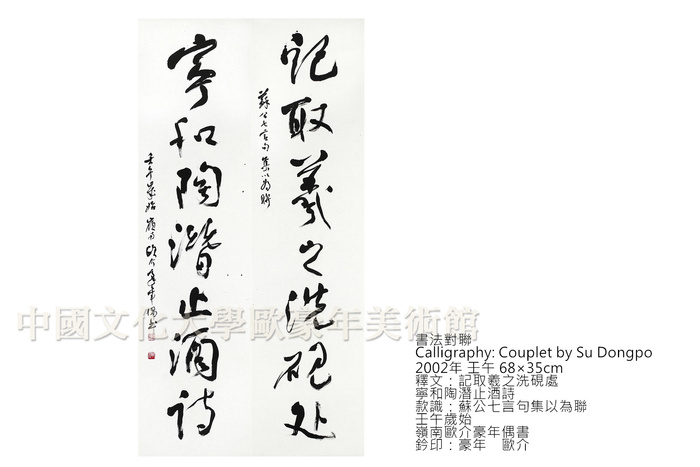 記取羲之洗硯处
蘇公七言句集以為聯
寧和陶潛止酒詩
壬午歲始嶺南歐介豪年偶書
中國文化大學歐豪年美術館
書法對聯
Calligraphy: Couplet by Su Dongpo
2002年 壬午 68×35cm
釋文：記取羲之洗硯處
寧和陶潛止酒詩
款識：蘇公七言句集以為聯
壬午歲始
嶺南歐介豪年偶書
鈐印：豪年　歐介